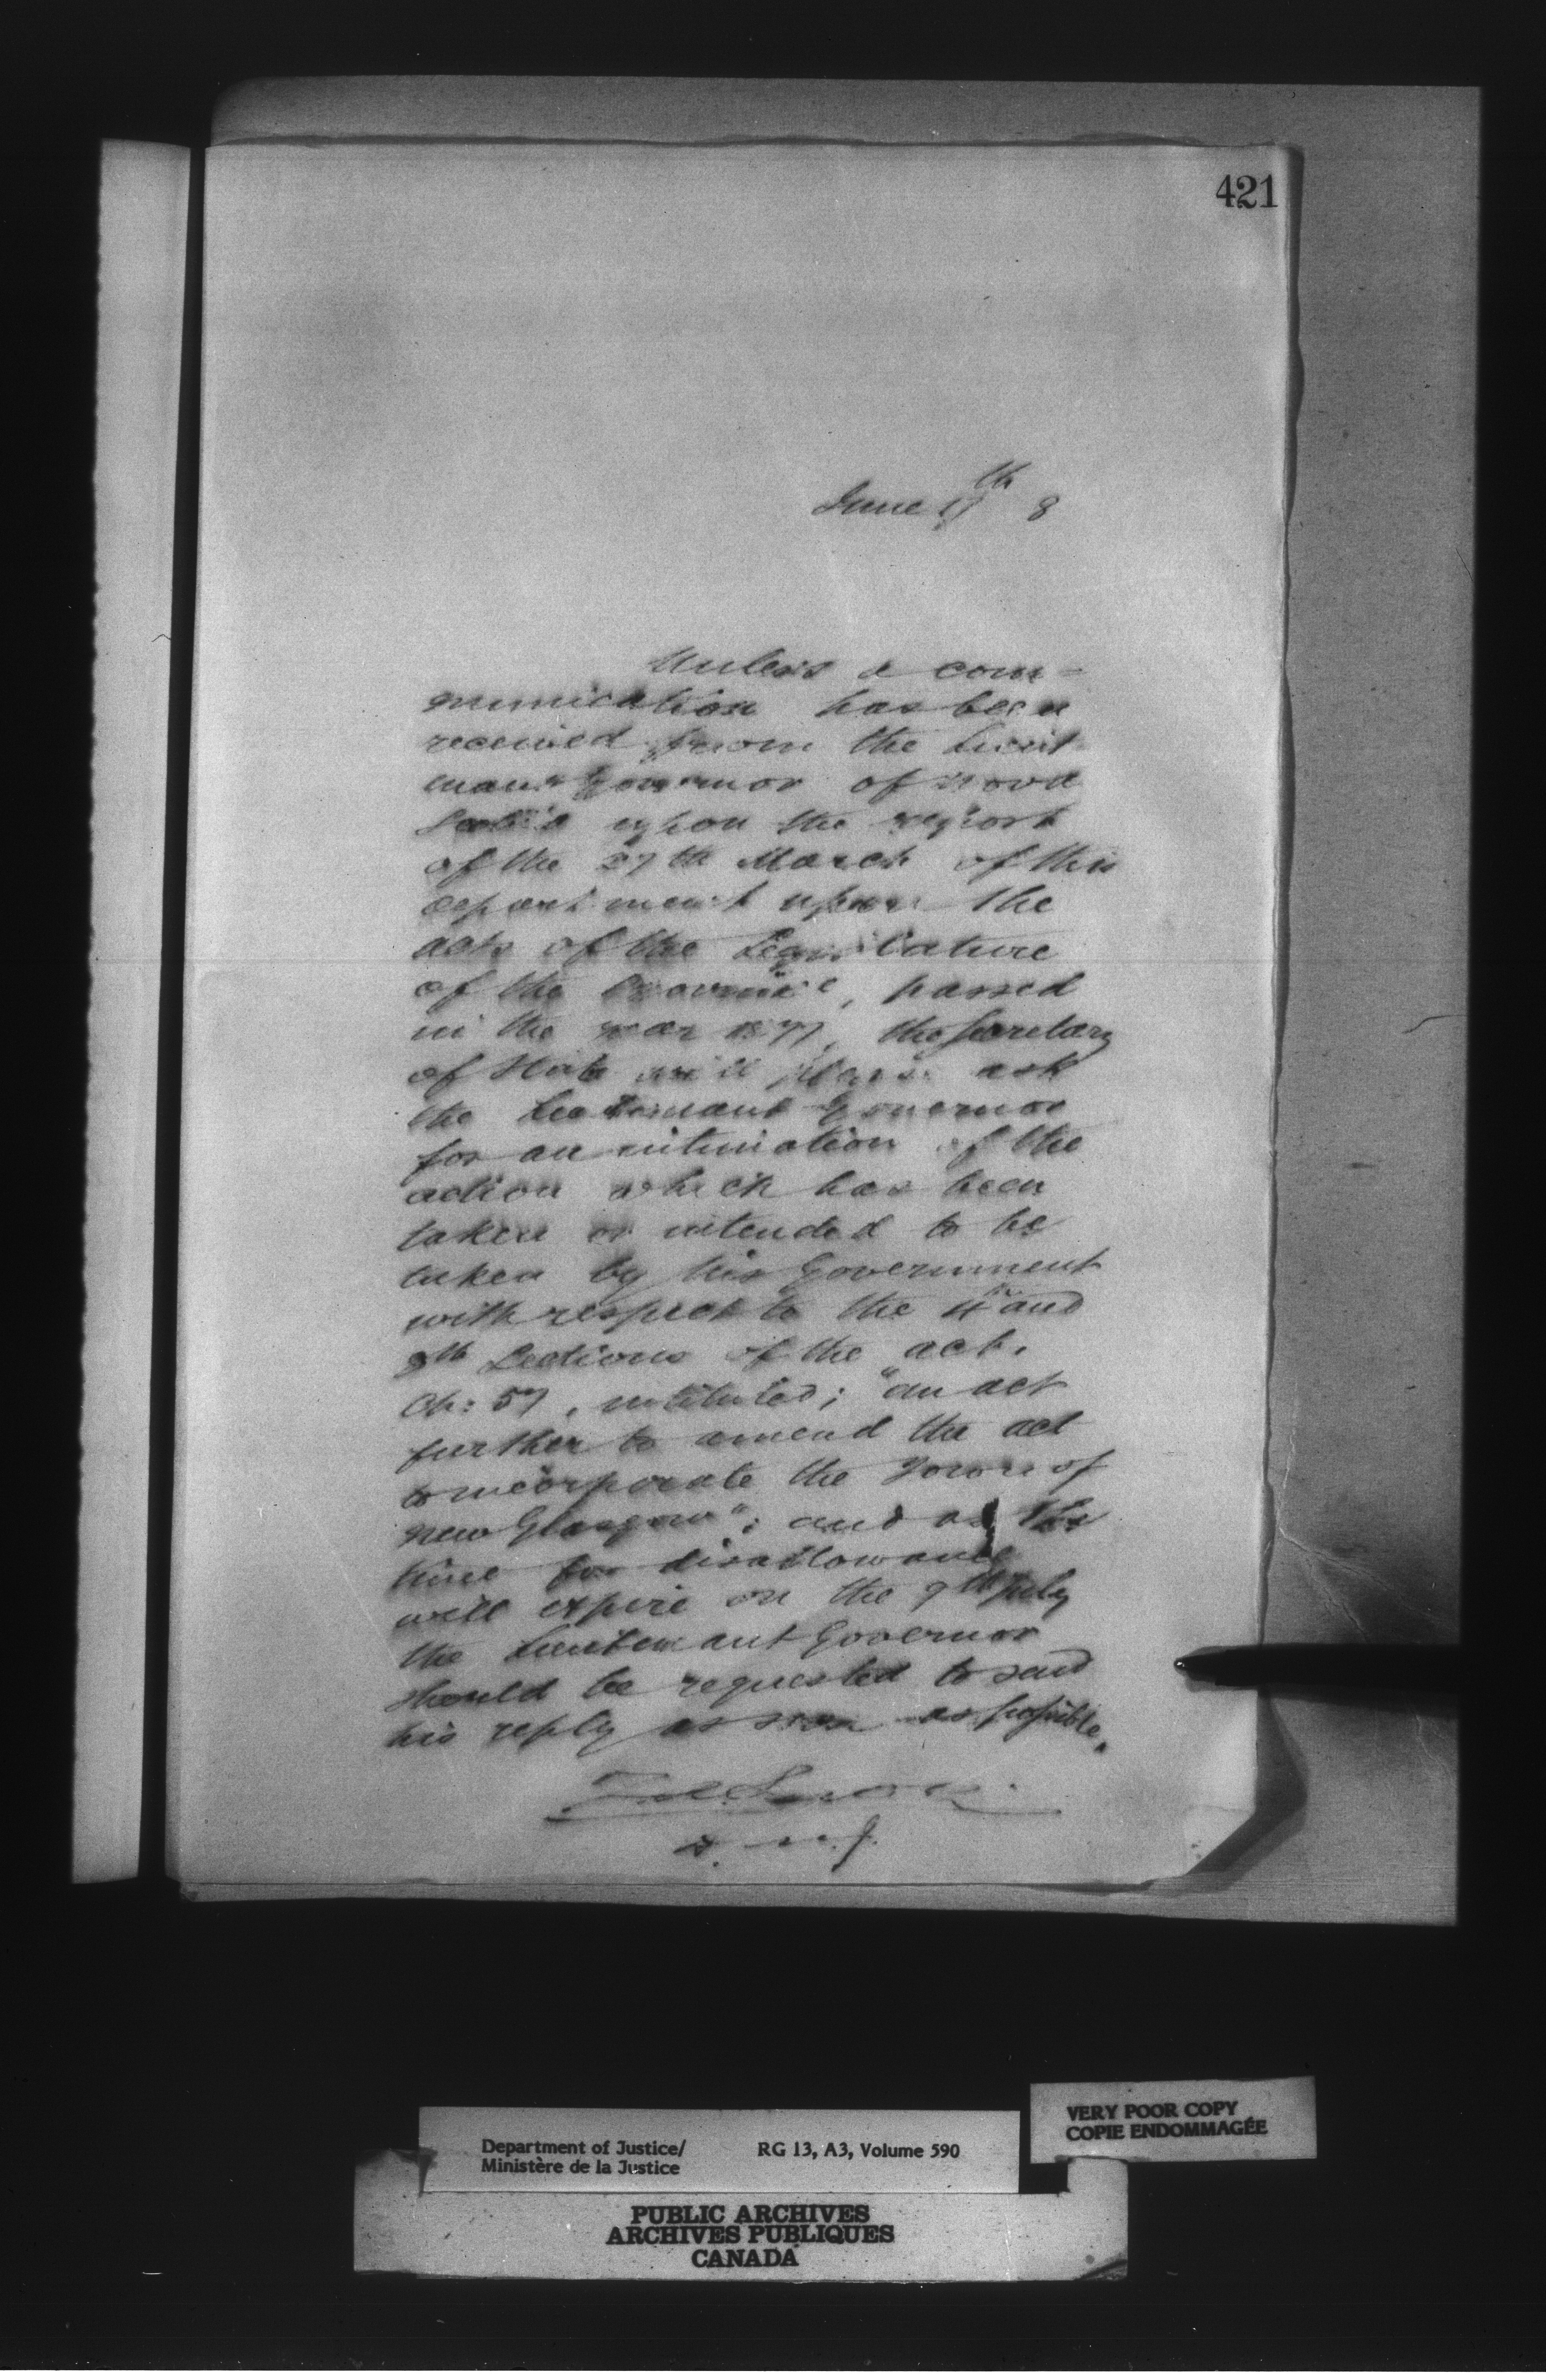 421
June 17th 8
Unless a com-
munication has been
received from the Lieut-
enant Governor of Nova
Scotia upon the report
of the 27th March of this
department upon the
acts of the Legislature
of the Province, passed
in the year 1877, the Secretary
of State will please ask
the Lieutenant Governor
for an intimation of the
action which has been
taken or intended to be
taken by his Government
with respect to the 4th and
9th Sections of the act.
Ch: 57, intituled; "an act
further to amend the act
to incorporate the Town of
New Glasgow"; and as the
time for disallowance
will expire on the 9th July
the Lieutenant Governor
should be requested to send
his reply as soon as possible.
D. M. J.
Department of Justice/
Ministère de la Justice
RG 13, A3, Volume 590
VERY POOR COPY
COPIE ENDOMMAGÉE
PUBLIC ARCHIVES
ARCHIVES PUBLIQUES
CANADA